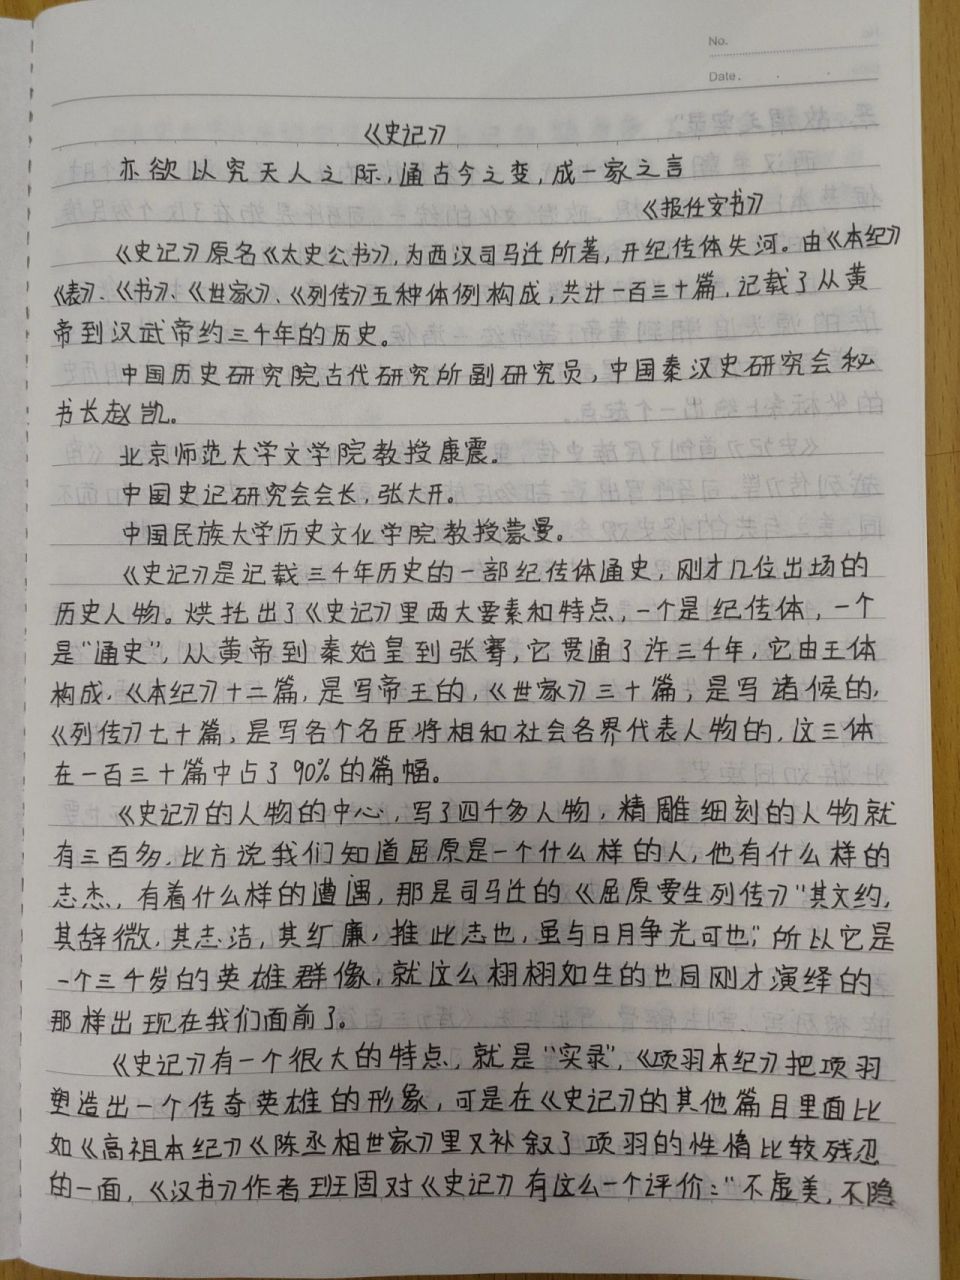 No.
Date.
《史记》
亦欲以究天人之际,通古今之变,成一家之言
《报任安书》
《史记》原名《太史公书》,为西汉司马迁所著,开纪传体先河。由《本纪》
《表》、《书》、《世家》、《列传》五种体例构成,共计一百三十篇,记载了从黄
帝到汉武帝约三千年的历史。
中国历史研究院古代研究所副研究员,中国秦汉史研究会秘
书长赵凯。
北京师范大学文学院教授康震。
中国史记研究会会长,张大开。
中国民族大学历史文化学院教授蒙曼。
《史记》是记载三千年历史的一部纪传体通史,刚才几位出场的
历史人物。烘托出了《史记》里两大要素和特点,一个是纪传体,一个
是"通史",从黄帝到秦始皇到张骞,它贯通了许三千年,它由王体
构成.《本纪》十二篇,是写帝王的,《世家》三十篇,是写诸候的,
《列传》七十篇,是写各个名臣将相和社会各界代表人物的,这三体
在一百三十篇中占了90%的篇幅。
《史记》的人物的中心,写了四千多人物,精雕细刻的人物就
有三百多,比方说我们知道屈原是一个什么样的人,他有什么样的
志杰,有着什么样的遭遇,那是司马迁的《屈原要生列传》"其文约,
其辞微,其志洁,其行廉,推此志也,虽与日月争光可也;"所以它是
一个三千岁的英雄群像,就这么栩栩如生的也同刚才演绎的
那样出现在我们面前了。
《史记》有一个很大的特点,就是"实录",《项羽本纪》把项羽
塑造出一个传奇英雄的形象,可是在《史记》的其他篇目里面比
如《高祖本纪》《陈丞相世家》里又补叙了项羽的性情比较残忍
的一面,《汉书》作者班固对《史记》有这么一个评价:"不虚美,不隐